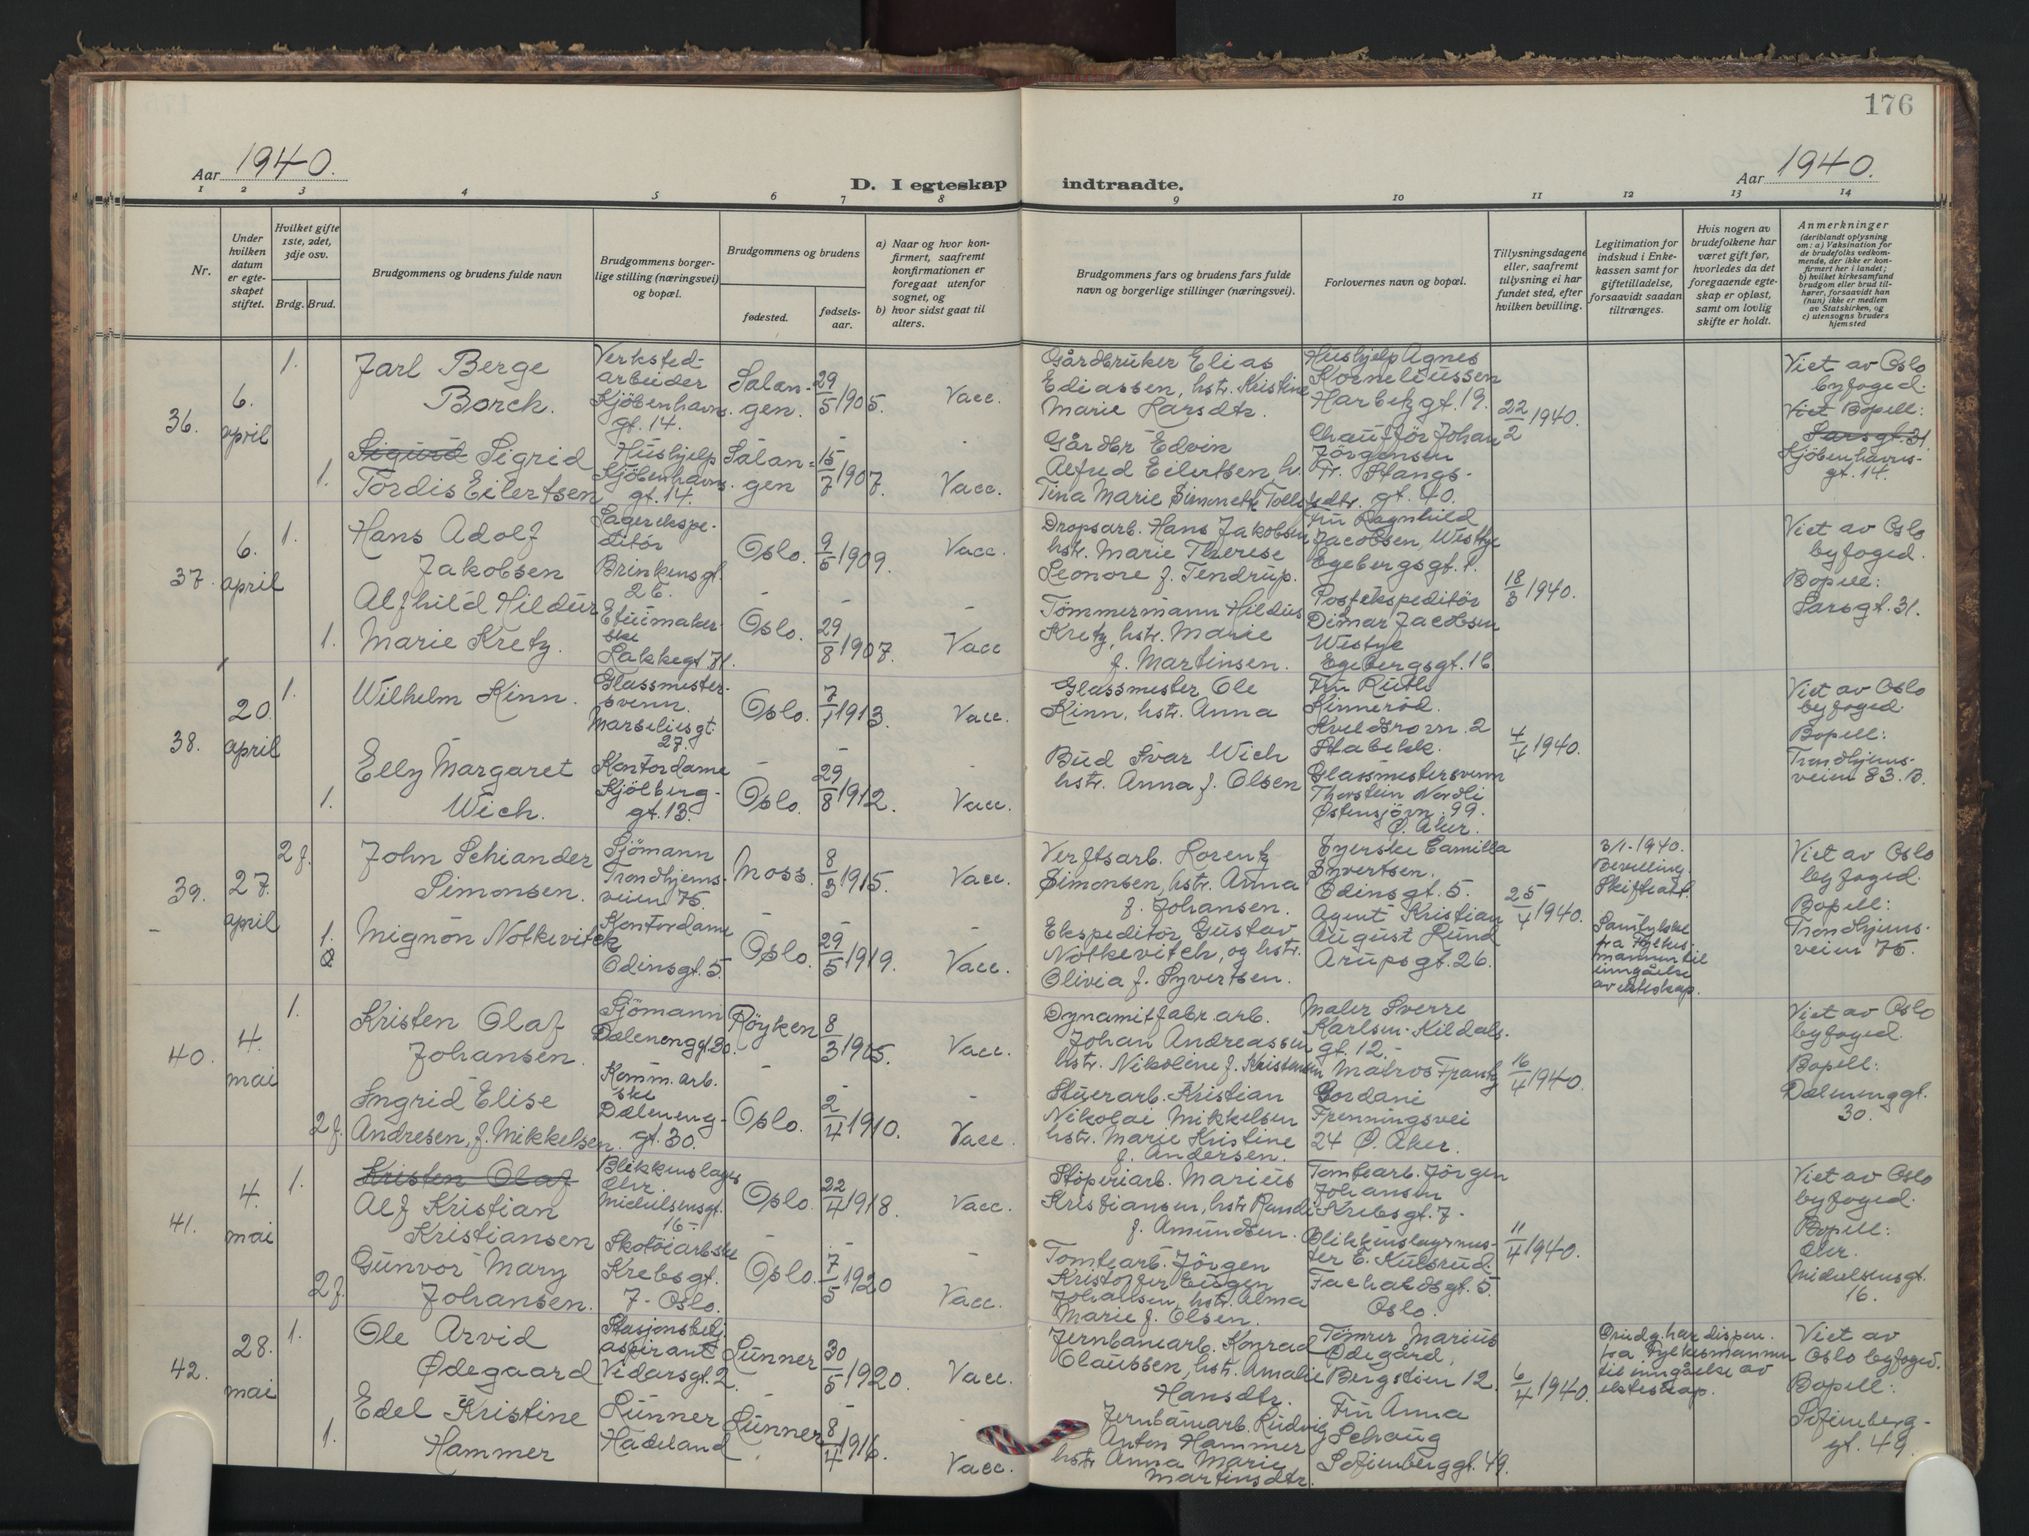 176
Aar 1940.
D. I egteskap indtraadte.
Aar 1940.
1 2 3 4 5 6 7 8 9 10 11 12 13 14
Nr.
Under hvilken datum er egteskapet stiftet.
Hvilket gifte 1ste, 2det, 3dje osv.
Brdg. Brud.
Brudgommens og brudens fulde navn
Brudgommens borgerlige stilling (næringsvei) og bopæl.
Brudgommens og brudens
fødested.
fødselsaar.
a) Naar og hvor konfirmert, saafremt konfirmationen er foregaat utenfor sognet, og
b) hvor sidst gaat til alters.
Brudgommens fars og brudens fars fulde navn og borgerlige stillinger (næringsvei).
Forlovernes navn og bopæl.
Tillysningsdagene eller, saafremt tillysning ei har fundet sted, efter hvilken bevilling.
Legitimation for indskud i Enkekassen samt for giftetilladelse, forsaavidt saadan tiltrænges.
Hvis nogen av brudefolkene har været gift før, hvorledes da det foregaaende egteskap er opløst, samt om lovlig skifte er holdt.
Anmerkninger
(deriblandt oplysning om: a) Vaksination for de brudefolks vedkommende, der ikke er konfirmert her i landet; b) hvilket kirkesamfund brudgom eller brud tilhører, forsaavidt han (hun) ikke er medlem av Statskirken, og c) utensogns bruders hjemsted
36.
6.
april
1.
Jarl Berge
Borch.
Verksted-
arbeider
Kjöbenhavns.
gt. 14.
Salan-
gen.
29/5 1905.
Vacc.
Gårdbruker Elias
Ediassen, hstr. Kristine
Marie Larsdtr.
Hushjelp Agnes
Korneliussen
Harbekgt. 19.
22/2 1940.
Viet av Oslo
byfoged.
Viet Bopell:
Sarsgt. 31
Kjöbenhavns-
gt. 14.
1.
Sigurd Sigrid
Tordis Eilertsen
Hushjelp
Kjöbenhavns.
gt. 14.
Salan-
gen
15/7 1907.
Vacc.
Gårdbr Edvin
Alfred Eilertsen, h.
Tina Marie Simonette
Chauffør Johan
Jörgensen
Fr. Stangs-
gt. 40.
37.
6.
april
1.
Hans Adolf
Jakobsen
Lagerekspe-
ditør
Brinkensgt.
26.
Oslo.
9/5 1909.
Vacc.
Dropsarb. Hans Jakobsen
hstr. Marie Therese
Leonore f. Tendrup.
Fru Ragnhild
Jacobsen, Westye
Egebergsgt. 1.
18/3 1940.
Viet av Oslo
byfoged.
Bopell:
Sarsgt. 31.
1.
Alfhild Hildur
Marie Kretz.
Etuimaker-
ske
Lakkegt 71.
Oslo.
29/8 1907.
Vacc
Tömmermann Hildus
Kretz, hstr. Marie
f. Martinsen.
Postekspeditör
Dimar Jacobsen
Westye
Egebergsgt. 16
38.
20.
april
1.
Wilhelm Kinn.
Glassmester-
svenn.
Marseliisgt.
27.
Oslo.
7/1 1913.
Vacc.
Glassmester Ole
Kinn, hstr. Anna
Fru Ruth
Kinneröd.
Kveldsrovn. 2
Stabekk.
4/4 1940.
Viet av Oslo
byfoged.
Bopell:
Trondhjems-
veien 83. B.
1.
Elly Margaret
Wich.
Kontordame
Kjölberg-
gt. 13.
Oslo.
29/8 1912.
Vacc.
Bud Ivar Wich
hstr. Anna f. Olsen
Glassmestersvenn
Thorstein Nordli
Østensjövn. 99.
Ö. Aker.
39.
27.
april
2 f.
John Schiander
Simonsen.
Sjömann
Trondhjems-
veien 75.
Moss.
8/3 1915.
Vacc.
Verftsarb. Lorentz
Simonsen, hstr. Anna
f. Johansen.
Syerske Camilla
Syvertsen.
Odinsgt. 5.
25/4 1940.
3/1-1940.
Bevilling.
Skifteatt.
Samtykke
fra Fylkes-
mannen til
inngåelse
av ekteskap.
Viet av Oslo
byfoged.
Bopell:
Trondhjems-
veien 75.
1.
Mignon Notkevitch
Kontordame
Odinsgt. 5.
Oslo.
29/5 1919.
Vacc.
Ekspeditör Gustav
Notkevitch, og hstr.
Olivia f. Syvertsen.
Agent Kristian
August Lund
Arupsgt. 26.
40.
4.
mai
1.
Kristen Olaf
Johansen.
Sjömann
Dælenenggt. 30.
Röyken
8/3 1905.
Vacc.
Dynamitfabr. arb.
Johan Andreassen
hstr. Nikoline f. Kristensen
Maler Sverre
Karlsen. Kildals.
gt. 12.-
16/4 1940.
Viet av Oslo
byfoged.
Bopell:
Dælenenggt.
30.
2 f.
Ingrid Elise
Andresen, f. Mikkelsen.
Komm. arb.
ske
Dæleneng-
gt. 30.
Oslo.
2/4 1910.
Vacc.
Stuerarb. Kristian
Nikolai Mikkelsen
hstr. Marie Kristine
f. Andersen.
Matros Frantz
Gordani
Frenningsvei
24 Ö. Aker.
41.
4.
mai
1.
Kristen Olaf
Alf Kristian
Kristiansen
Blikkenslager
Chr.
Michelsensgt.
16.-
Oslo.
22/4 1918.
Vacc.
Støperiarb. Marius
Kristiansen, hstr Randi
f. Amundsen.
Tomtearb. Jörgen
Johansen
Krebsgt. 7-
11/4 1940.
Viet av Oslo
byfoged.
Bopell:
Chr.
Michelsensgt.
16.
2 f.
Gunvor Mary
Johansen.
Skotöiarbske
Krebsgt.
7- Oslo.
Oslo.
7/5 1920
Vacc.
Tomtearb. Jörgen
Kristoffer Eugen
Johansen, hstr. Alma
Marie f. Olsen.
Blikkenslagermes-
ter E. Kulsrud.
Oslo.
42.
28.
mai
1.
Ole Arvid
Ødegaard
Stasjonsbetj.
aspirant
Vidarsgt. 2.
Lunner
30/5 1920.
Vacc.
Jernbanearb. Konrad
Claussen, hstr. Amalie
Hansdtr.
Tömrer Marius
Ödegård,
Bergstien 12.
6/4 1940.
Brudg. har dispen.
fra Fylkesmannen
til inngåelse av
ekteskap.
Viet av
Oslo byfoged.
Bopell:
Sofienberg-
gt. 49.
1.
Edel Kristine
Hammer
Lunner
Hadeland
Lunner
8/4 1916.
Vacc.
Jernbanearb. Ludvig
Anton Hammer
hstr Anna Marie
Martinsdtr.
Fru Anna
Schaug
Sofienberggt. 49.